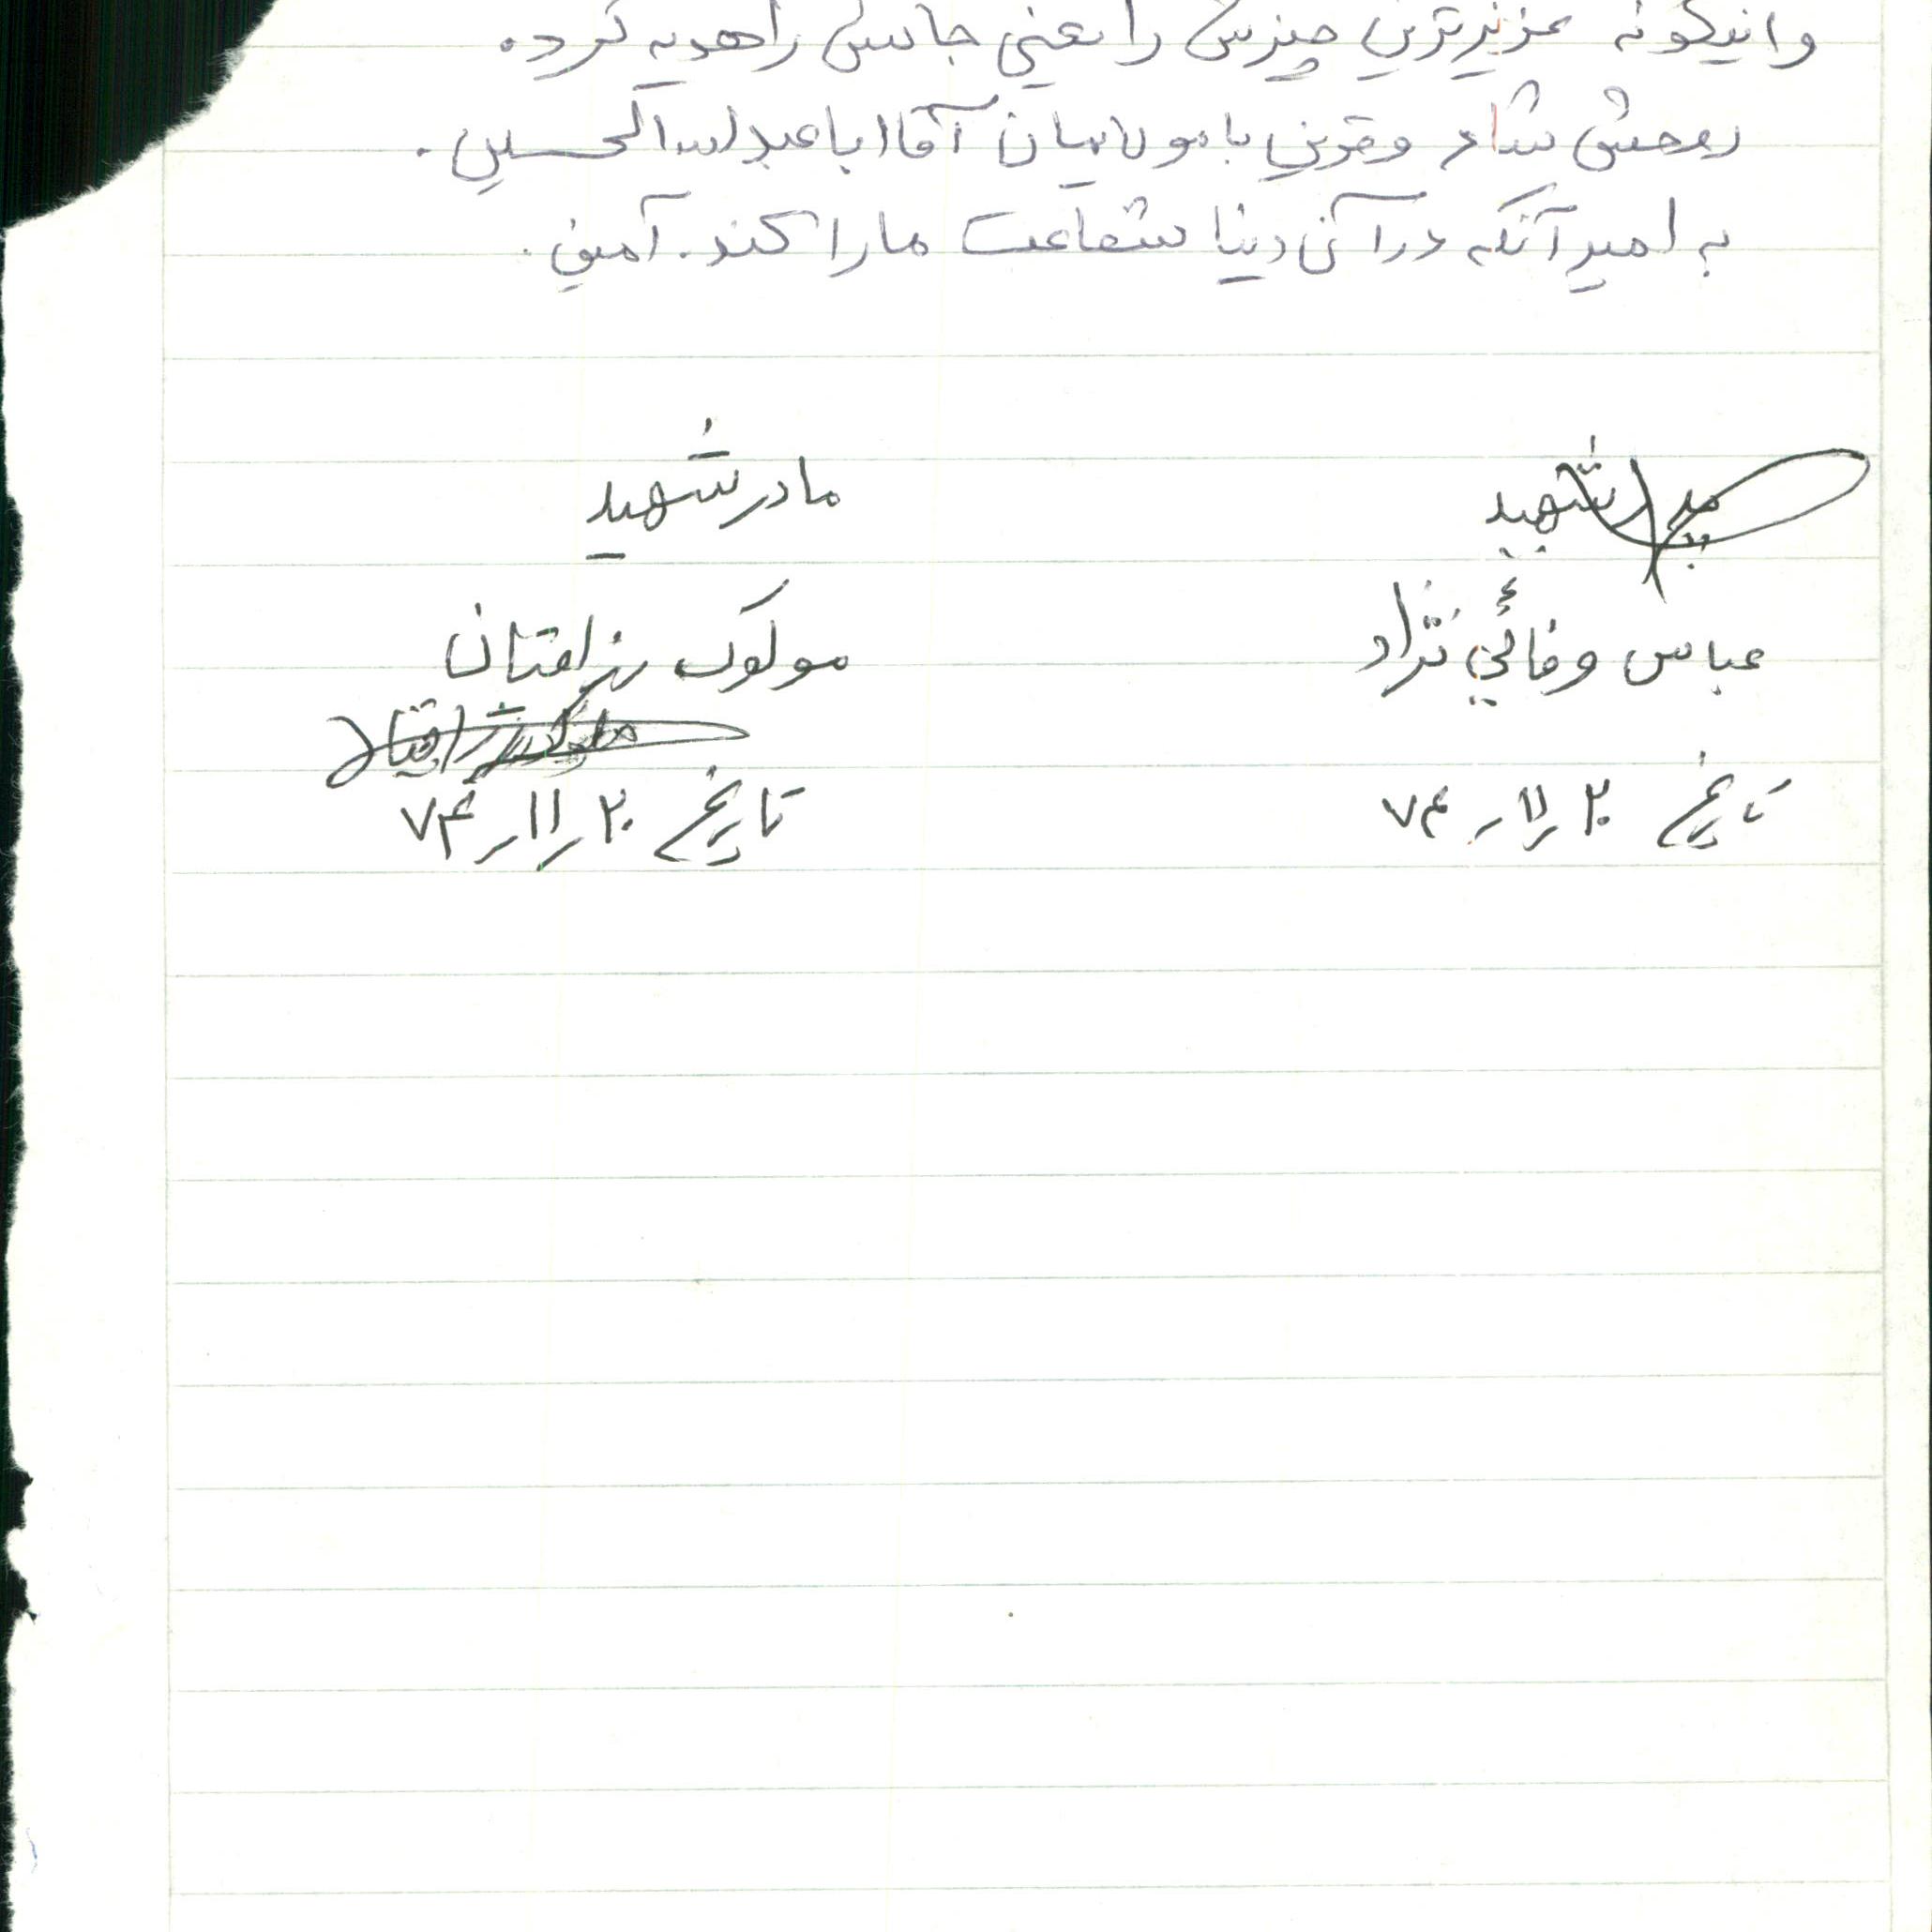 و اینگونه عزیزترین چیزش را یعنی جانش را هدیه کرد.
روحش شاد و قرین با مولایمان آقا ابا عبدالله الحسین.
به امید آنکه در آن دنیا شفاعت ما را کند. آمین.
پدر شهید
مادر شهید
عباس وفائی نژاد
مولوک
تاریخ ۲۰ ر ۱۱ ر ۷۴
تاریخ ۲۰ ر ۱۱ ر ۷۴